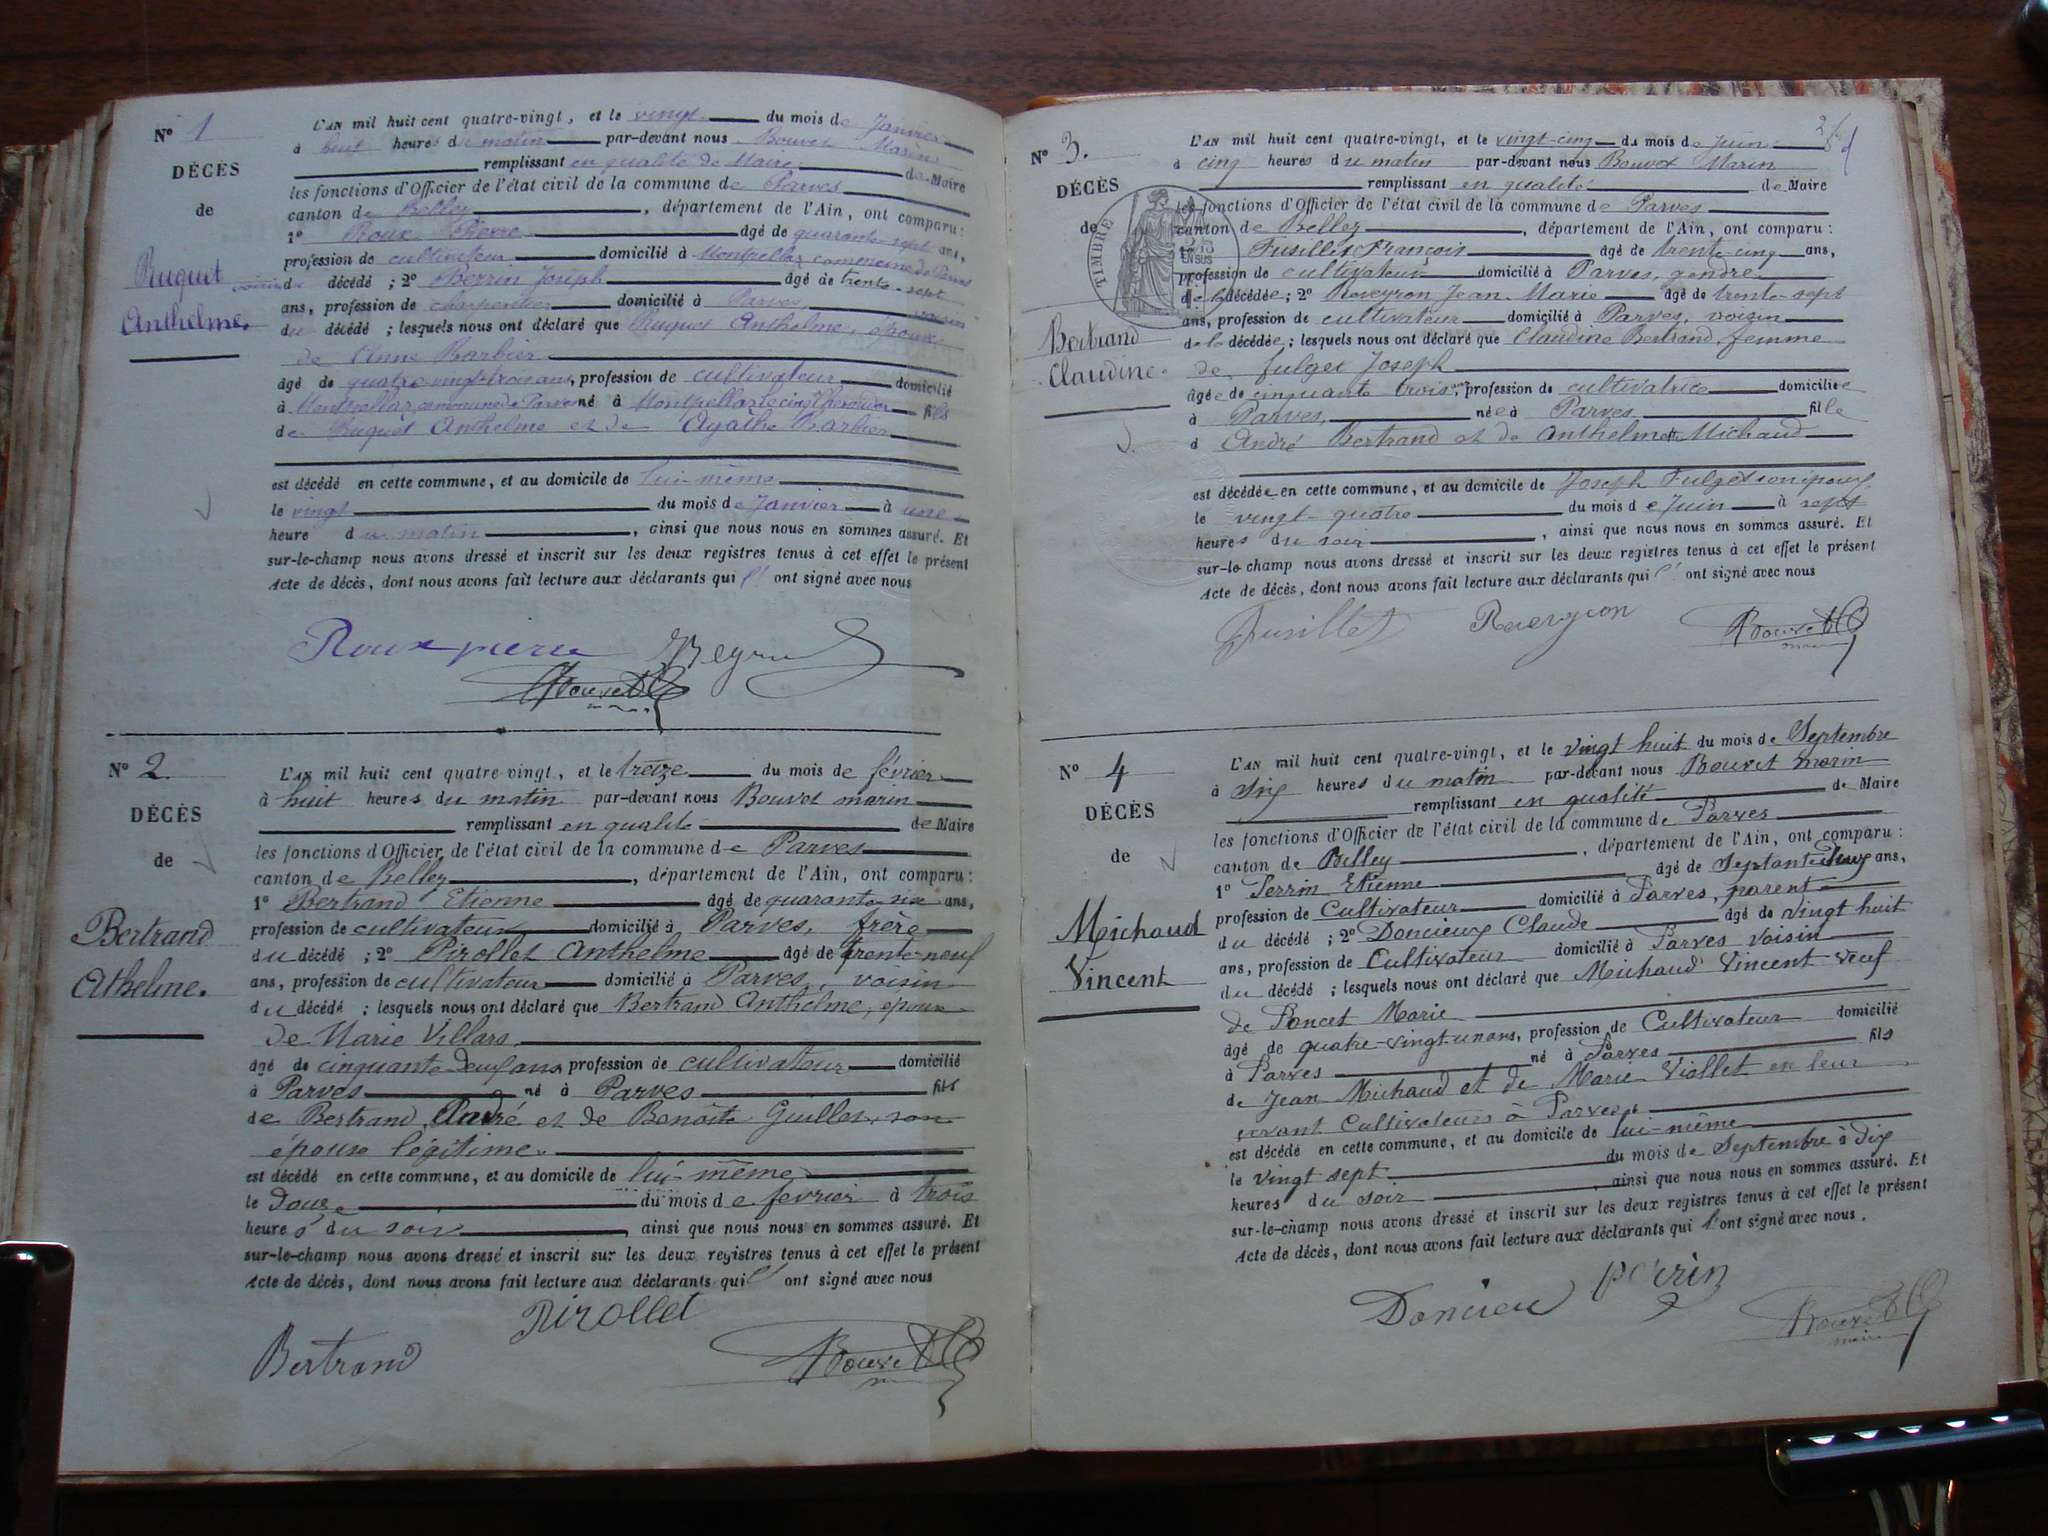 N° 1
DÉCÈS
de
Ruquet
Anthelme.
L'AN mil huit cent quatre-vingt, et le vingt du mois de Janvier
à huit heures du matin par-devant nous Bouvet Marin
remplissant en qualité de Maire de Maire
les fonctions d'Officier de l'état civil de la commune de Parves
canton de Belley, département de l'Ain, ont comparu :
1° Roux Pierre âgé de quarante-sept ans,
profession de cultivateur domicilié à Montpellaz commune de Parves
voisin du décédé ; 2° Perrin Joseph âgé de trente-sept
ans, profession de charpentier domicilié à Parves voisin
du décédé ; lesquels nous ont déclaré que Ruquet Anthelme, époux
de Anne Barbier
âgé de quatre-vingt-trois ans, profession de cultivateur domicilié
à Montpellaz commune de Parves né à Montpellaz fils
de Ruquet Anthelme et de Agathe Barbier
est décédé en cette commune, et au domicile de lui-même
le vingt du mois de Janvier à une
heure du matin, ainsi que nous nous en sommes assuré. Et
sur-le-champ nous avons dressé et inscrit sur les deux registres tenus à cet effet le présent
Acte de décès, dont nous avons fait lecture aux déclarants qui l' ont signé avec nous
Roux pierre
Bouvet
N° 2.
DÉCÈS
de
Bertrand
Athelme.
L'AN mil huit cent quatre-vingt, et le treize du mois de février
à huit heures du matin par-devant nous Bouvet marin
remplissant en qualité de Maire
les fonctions d'Officier de l'état civil de la commune de Parves
canton de Belley, département de l'Ain, ont comparu :
1° Bertrand Etienne âgé de quarante-six ans,
profession de cultivateur domicilié à Parves, frère
du décédé ; 2° Pirollet Anthelme âgé de trente-neuf
ans, profession de cultivateur domicilié à Parves, voisin
du décédé ; lesquels nous ont déclaré que Bertrand Anthelme, époux
de Marie Villars,
âgé de cinquante-deux ans profession de cultivateur domicilié
à Parves né à Parves fils
de Bertrand André et de Benoîte Guillet, son
épouse légitime.
est décédé en cette commune, et au domicile de lui-même
le Douze du mois de fevrier à trois
heures du soir, ainsi que nous nous en sommes assuré. Et
sur-le-champ nous avons dressé et inscrit sur les deux registres tenus à cet effet le présent
Acte de décès, dont nous avons fait lecture aux déclarants qui l' ont signé avec nous
Pirollet
Bertrand
Bouvet
N° 3.
DÉCÈS
de
TIMBRE
Bertrand
Claudine.
L'AN mil huit cent quatre-vingt, et le vingt-cinq du mois de Juin
à cinq heures du matin par-devant nous Bouvet Marin
remplissant en qualité de Maire
les fonctions d'Officier de l'état civil de la commune de Parves
canton de Belley, département de l'Ain, ont comparu :
1° Fusillet François âgé de trente-cinq ans,
profession de cultivateur domicilié à Parves, gendre
de la décédée ; 2° Reveyron Jean-Marie âgé de trente-sept
ans, profession de cultivateur domicilié à Parves, voisin
de la décédée ; lesquels nous ont déclaré que Claudine Bertrand femme
de fulget Joseph
âgée de cinquante trois ans, profession de cultivatrice domiciliée
à Parves, née à Parves fille
d André Bertrand et de Anthelmette Michaud
est décédée en cette commune, et au domicile de Joseph Fulget son époux
le vingt-quatre du mois de Juin à sept
heures du soir, ainsi que nous nous en sommes assuré. Et
sur-le-champ nous avons dressé et inscrit sur les deux registres tenus à cet effet le présent
Acte de décès, dont nous avons fait lecture aux déclarants qui l' ont signé avec nous
Fusillet
Bouvet
maire
N° 4
DÉCÈS
de
Michaud
Vincent
L'AN mil huit cent quatre-vingt, et le vingt huit du mois de Septembre
à Six heures du matin par-devant nous Bouvet marin
remplissant en qualité de Maire
les fonctions d'Officier de l'état civil de la commune de Parves
canton de Billey, département de l'Ain, ont comparu :
1° Perrin Etienne âgé de Septante deux ans,
profession de Cultivateur domicilié à Parves, parent
du décédé ; 2° Doncieux Claude âgé de vingt huit
ans, profession de Cultivateur domicilié à Parves voisin
du décédé ; lesquels nous ont déclaré que Michaud Vincent veuf
de Poncet Marie
âgé de quatre-vingt-un ans, profession de Cultivateur domicilié
à Parves né à Parves fils
de Jean Michaud et de Marie Viollet en leur
vivant Cultivateurs à Parves
est décédé en cette commune, et au domicile de lui-même
le vingt sept du mois de Septembre à dix
heures du soir, ainsi que nous nous en sommes assuré. Et
sur-le-champ nous avons dressé et inscrit sur les deux registres tenus à cet effet le présent
Acte de décès, dont nous avons fait lecture aux déclarants qui l'ont signé avec nous.
perrin
Doncieu
Bouvet
maire